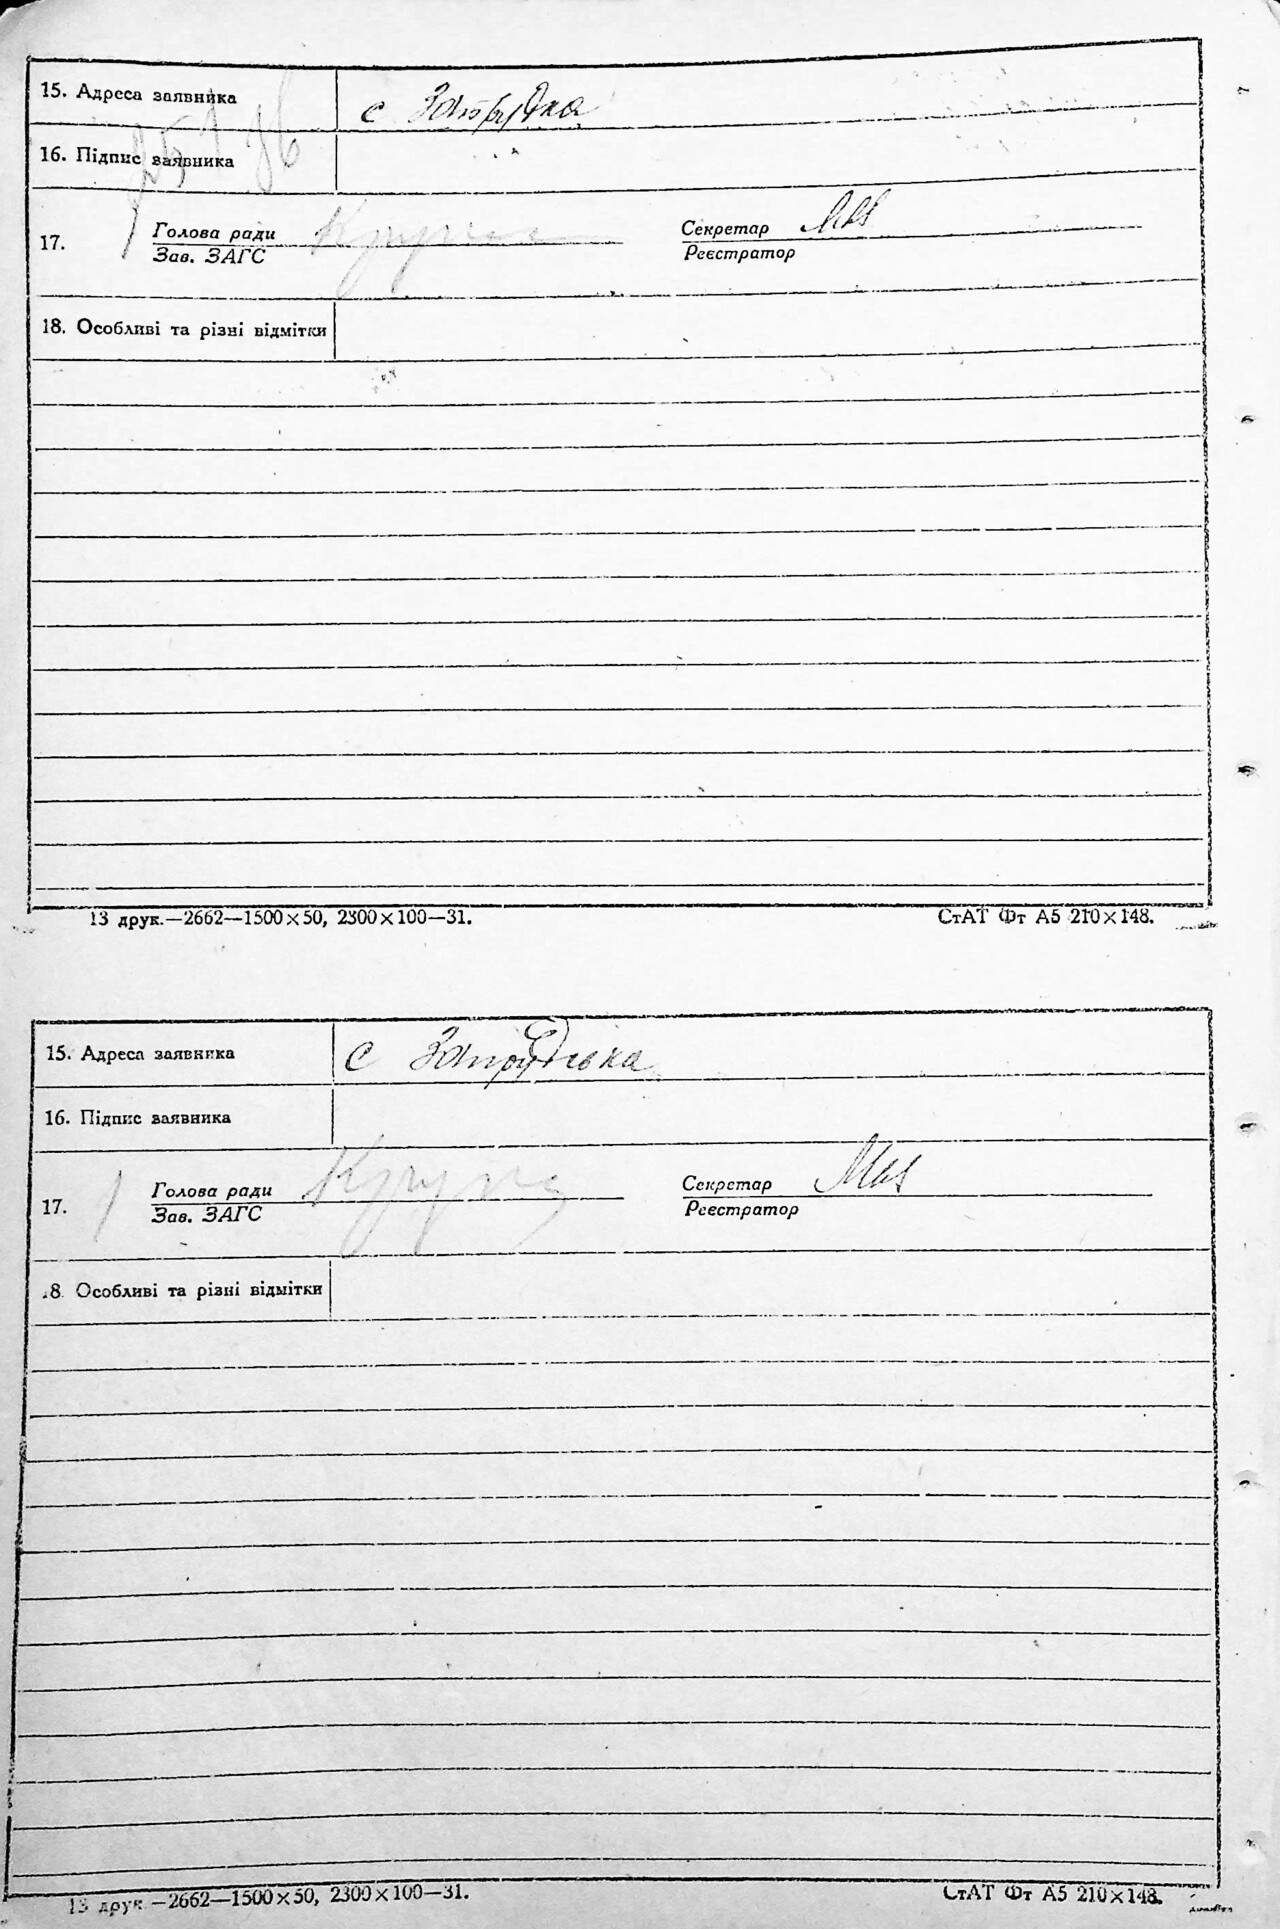 15. Адреса заявника с Запрудка
16. Підпис заявника
17. Голова ради Секретар
Зав. ЗАГС Реєстратор
18. Особливі та різні відмітки
13 друк.—2662—1500×50, 2300×100—31. СтАТ Фт А5 210×148.
15. Адреса заявника с Запрудська
16. Підпис заявника
17. Голова ради Секретар
Зав. ЗАГС Реєстратор
18. Особливі та різні відмітки
13 друк.—2662—1500×50, 2300×100—31. СтАТ Фт А5 210×148.